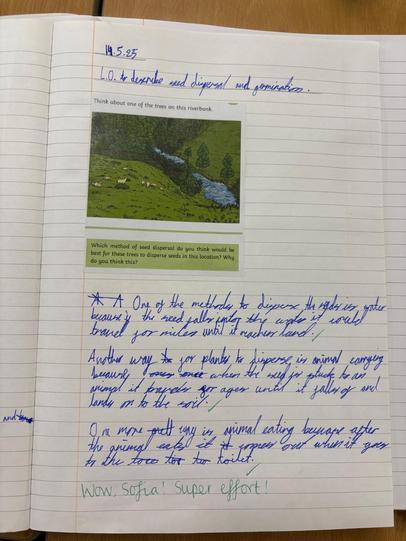 19.5.25
L.O. to describe seed dispersal and germination.
Think about one of the trees on this riverbank.
Which method of seed dispersal do you think would be
best for these trees to disperse seeds in this location? Why
do you think this?
A. One of the methods to disperse the is water
because if the seed falls into the water it would
travel for miles until it reaches land.
Another way for plants to disperse is animal carrying
because when the seed is stuck to an
animal it travels for ages until it falls of and
lands on to the soil.
and
One more way is animal eating because after
the animal eats it it comes out when it goes
to the toilet.
Wow, Sofia! Super effort!